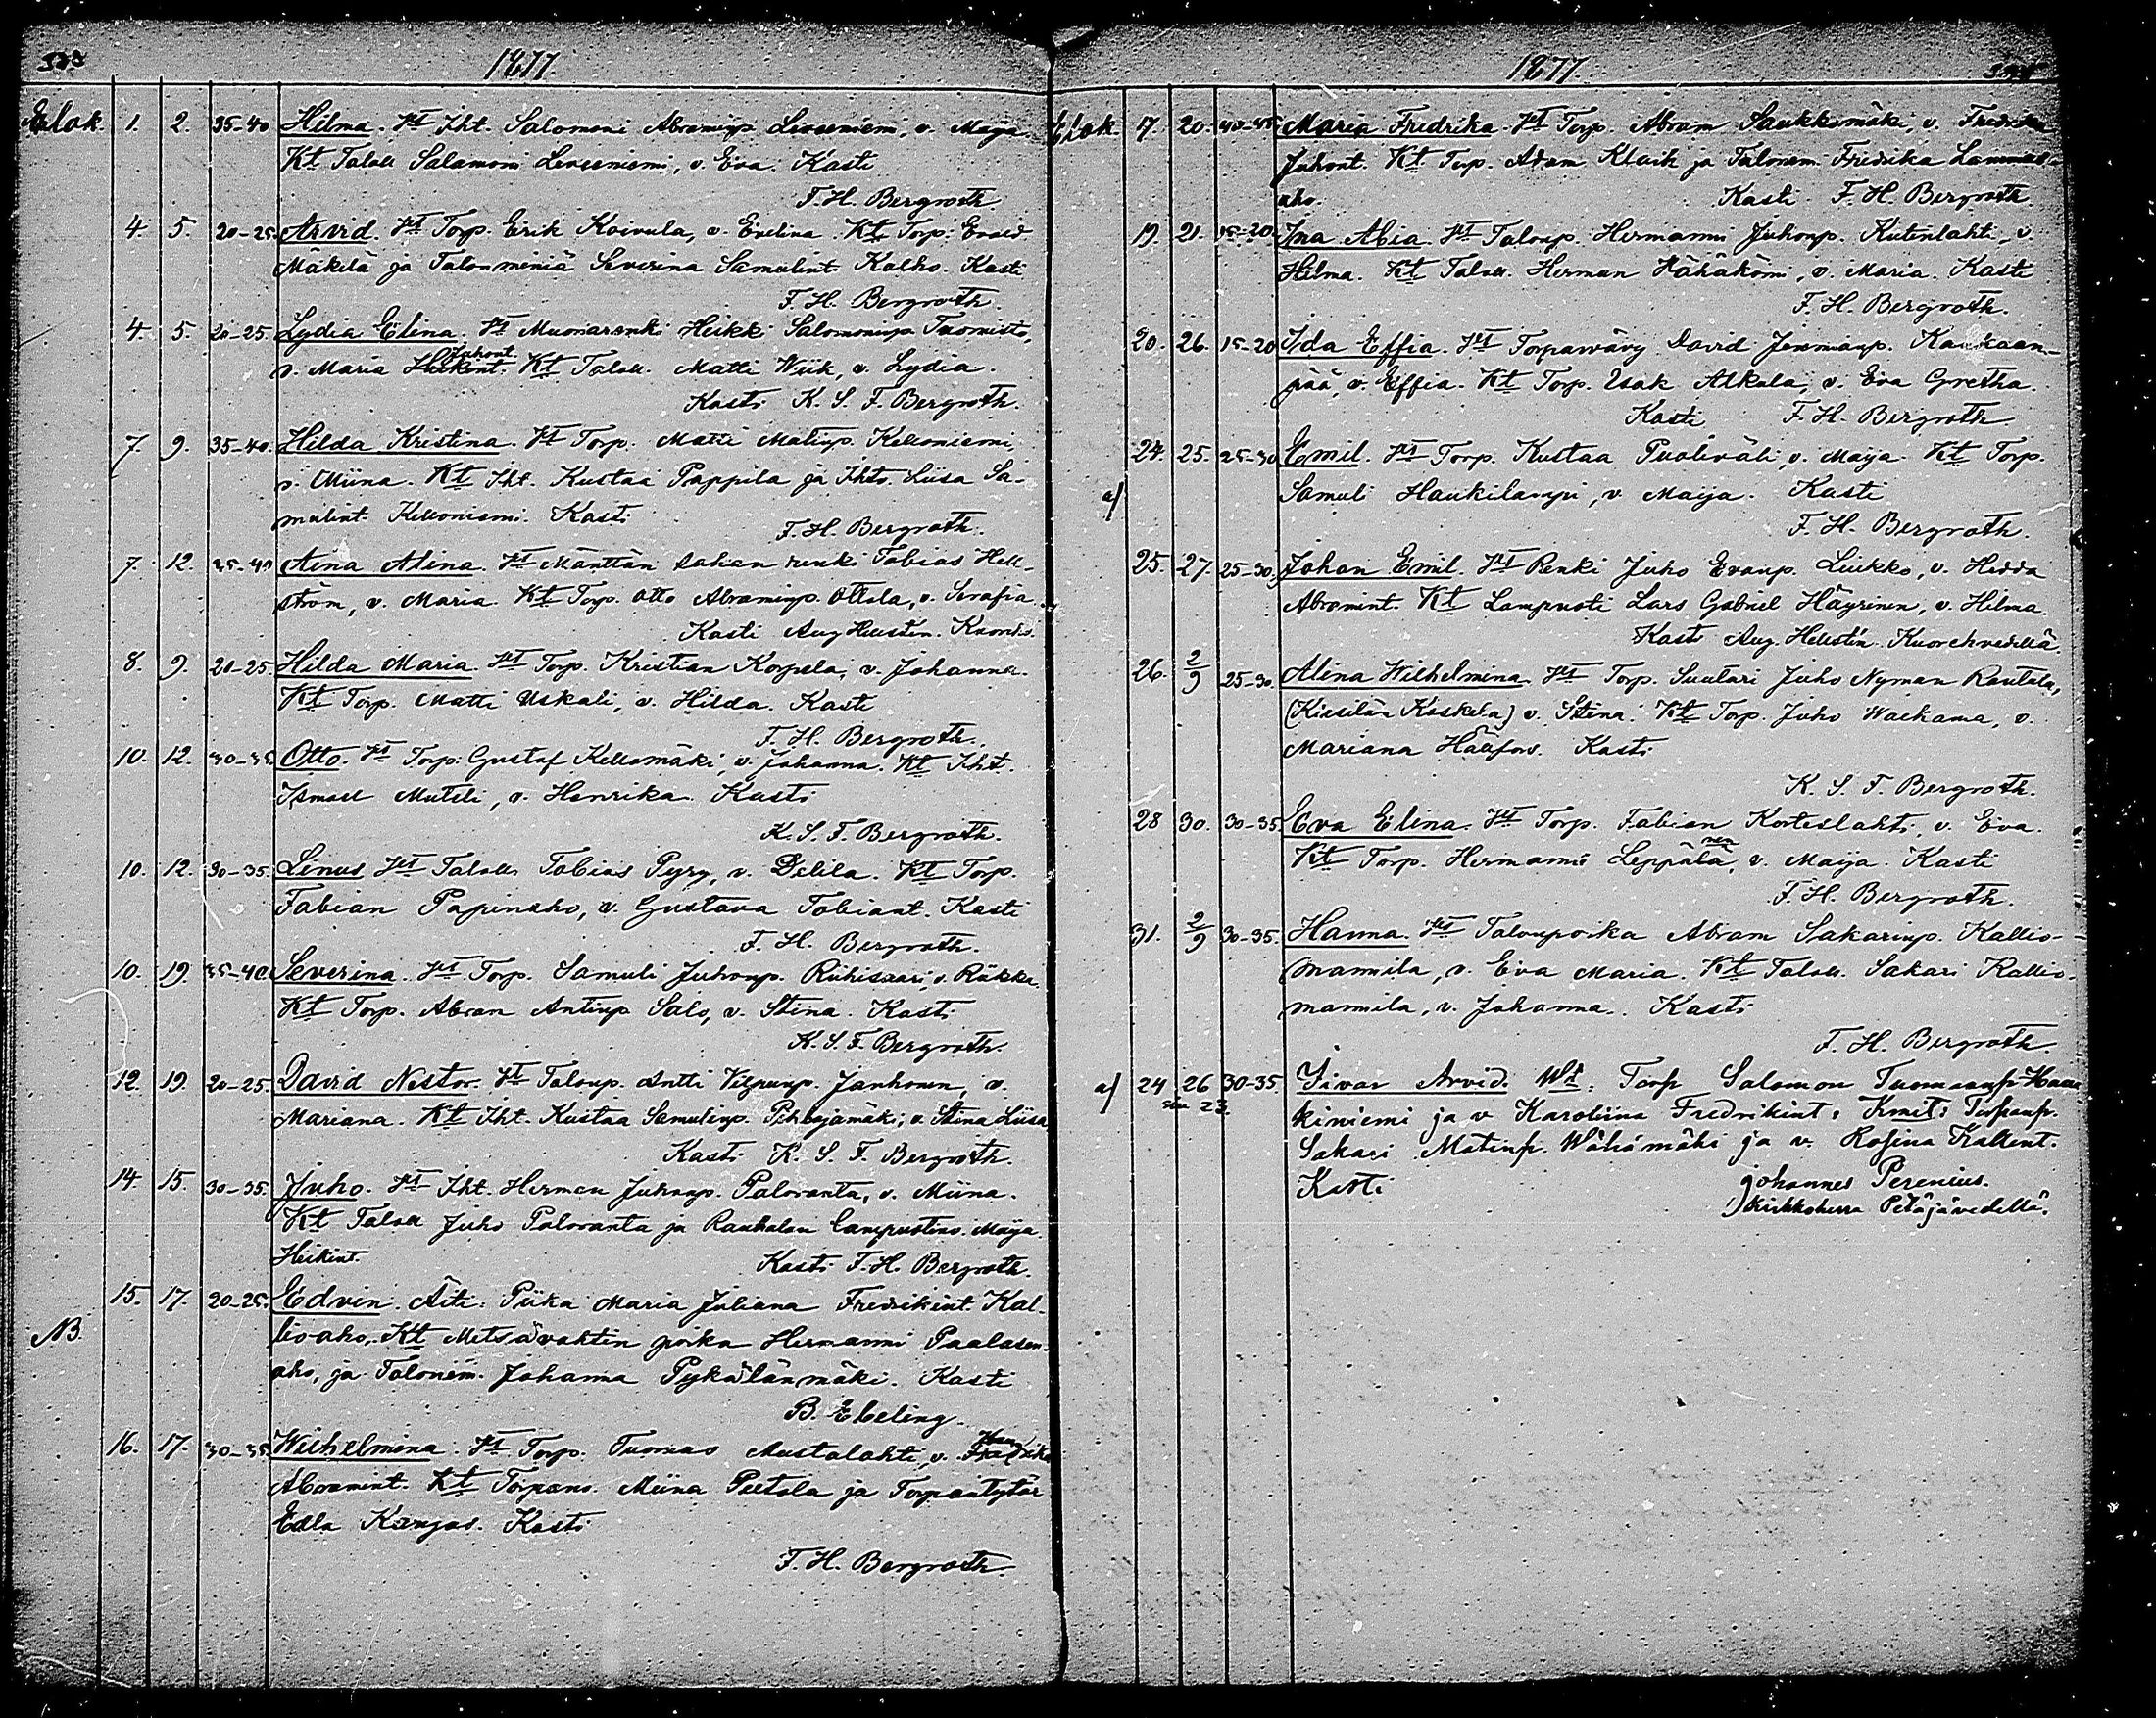 1877.
Elok. 1. 2. 35-40 Hilma. Vt Iht. Salomoni Abraminp. Leveeniemi, v. Maija
Kt Talok Salomoni Leveeniemi, v. Eva. Kasti
F. H. Bergroth
4. 5. 20-25. Arvid. Vt Torp. Erik Koivula, v. Evelina. Kt Torp. Evald
Mäkelä ja Talonmeniä Severina Samulint. Kalho. Kasti
F. H. Bergroth.
4. 5. 20-25. Lydia Elina. Vt Muonarenki Heikki Salomoninp. Tuomisto,
Juhont.
v. Maria Heikint. Kt Talok. Matti Wiik, v. Lydia.
Kasti K. S. F. Bergroth.
7. 9. 35-40. Hilda Kristina. Vt Torp. Matti Matinp. Kelloniemi,
v. Miina. Kt Iht. Kustaa Pappila ja Iht. Liisa Sa-
mulint. Kelloniemi. Kasti
F. H. Bergroth.
7. 12. 35-40 Aina Alina. Vt Mänttän sahan renki Tobias Hell-
ström, v. Maria. Kt Torp. Otto Abraminp. Ottala, v. Serafia.
Kasti Aug Hellstén. Kuoreh.
8. 9. 20-25 Hilda Maria Vt Torp. Kristian Korpela, v. Johanna.
Kt Torp. Matti Uskali, v. Hilda. Kasti
F. H. Bergroth.
10. 12. 30-35. Otto. Vt Torp. Gustaf Kellomäki, v. Johanna. Kt Iht.
Ismael Muteli, v. Henrika. Kasti
K. S. F. Bergroth.
10. 12. 30-35. Linus Vt Talok. Tobias Pyry, v. Delila. Kt Torp.
Fabian Papinaho, v. Gustava Tobiant. Kasti
F. H. Bergroth.
10. 19. 35-40. Severina. Vt Torp. Samuli Juhonp. Riihisaari, v. Räkke.
Kt Torp. Abram Antinp Salo, v. Stina. Kasti
K. S. F. Bergroth.
12. 19. 20-25 David Nestor. Vt Talonp. Antti Vilpunp. Janhonen, v.
Mariana. Kt Iht. Kustaa Samulinp. Pihlajamäki, v. Stina Liisa
Kasti K. S. F. Bergroth.
14. 15. 30-35. Juho. Vt Iht. Herman Juhonp. Paloranta, v. Miina.
Kt Talok Juho Paloranta ja Rauhalan Lampuotins. Maija
Heikint. Kasti F. H. Bergroth.
15. 17. 20-25. Edvin. Äiti: Piika Maria Juliana Fredrikint. Kal-
NB. lioaho. Kt Metsävahtin poika Hermanni Paalasen-
aho, ja Talonem. Johanna Pykälänmäki. Kasti
B. Ebeling.
16. 17. 30-35 Wilhelmina. Vt Torp. Tuomas Mustalahti, v. Fredrika
Abramint. Kt Torpans. Miina Peetala ja Torpantytär
Edla Kangas. Kasti
F. H. Bergroth.
1877.
Elok 17. 20. 40-45 Maria Fredrika. Vt Torp. Abram Saukkomäki, v. Fredrika
Juhont. Kt Torp. Adam Kluik ja Talonem. Fredrika Lammas-
aho. Kasti F. H. Bergroth.
19. 21. 15-20. Ina Abia Vt Talonp. Hermanni Juhonp. Kutenlahti, v.
Hilma. Kt Talok. Herman Hähäkömi, v. Maria. Kasti
F. H. Bergroth.
20. 26. 15-20 Ida Effia. Vt Torpanvävy David Jeremanp. Kankaan-
pää, v. Effia. Kt Torp. Isak Alkula, v. Eva Gretha.
Kasti F. H. Bergroth.
24. 25. 25-30 Emil. Vt Torp. Kustaa Puoliväli, v. Maija. Kt Torp.
a) Samuli Haukilampi, v. Maija. Kasti
F. H. Bergroth.
25. 27. 25-30. Johan Emil. Vt Renki Juho Evanp. Liukko, v. Hedda
Abramint. Kt Lampuoti Lars Gabriel Häyrinen, v. Hilma.
Kasti Aug. Hellstén. Kuorehvedellä.
26. 2/9 25-30. Alina Wilhelmina Vt Torp. Suutari Juho Nyman Rautala,
(Kiesilän Koskela) v. Stina. Kt Torp. Juho Wackama, v.
Mariana Hällfors. Kasti
K. S. F. Bergroth.
28 30. 30-35. Eva Elina. Vt Torp. Fabian Korteslahti, v. Eva.
nen
Kt Torp. Hermanni Leppälä, v. Maija. Kasti
F. H. Bergroth.
31. 2/9 30-35. Hanna. Vt Talonpoika Abram Sakarinp. Kallio-
mannila, v. Eva Maria. Kt Talok. Sakari Kallio-
mannila, v. Johanna. Kasti
F. H. Bergroth.
a) 24 26 30-35. Iivar Arvid. Wt. Torp Salomon Tuomaanp. Hau
kiniemi ja v Karoliina Fredrikint. Kmit: Torpanp.
Sakari Matinp. Wähämäki ja v. Rosina Kallent.
Kasti Johannes Perenius.
Kirkkoherra Petäjävedellä.